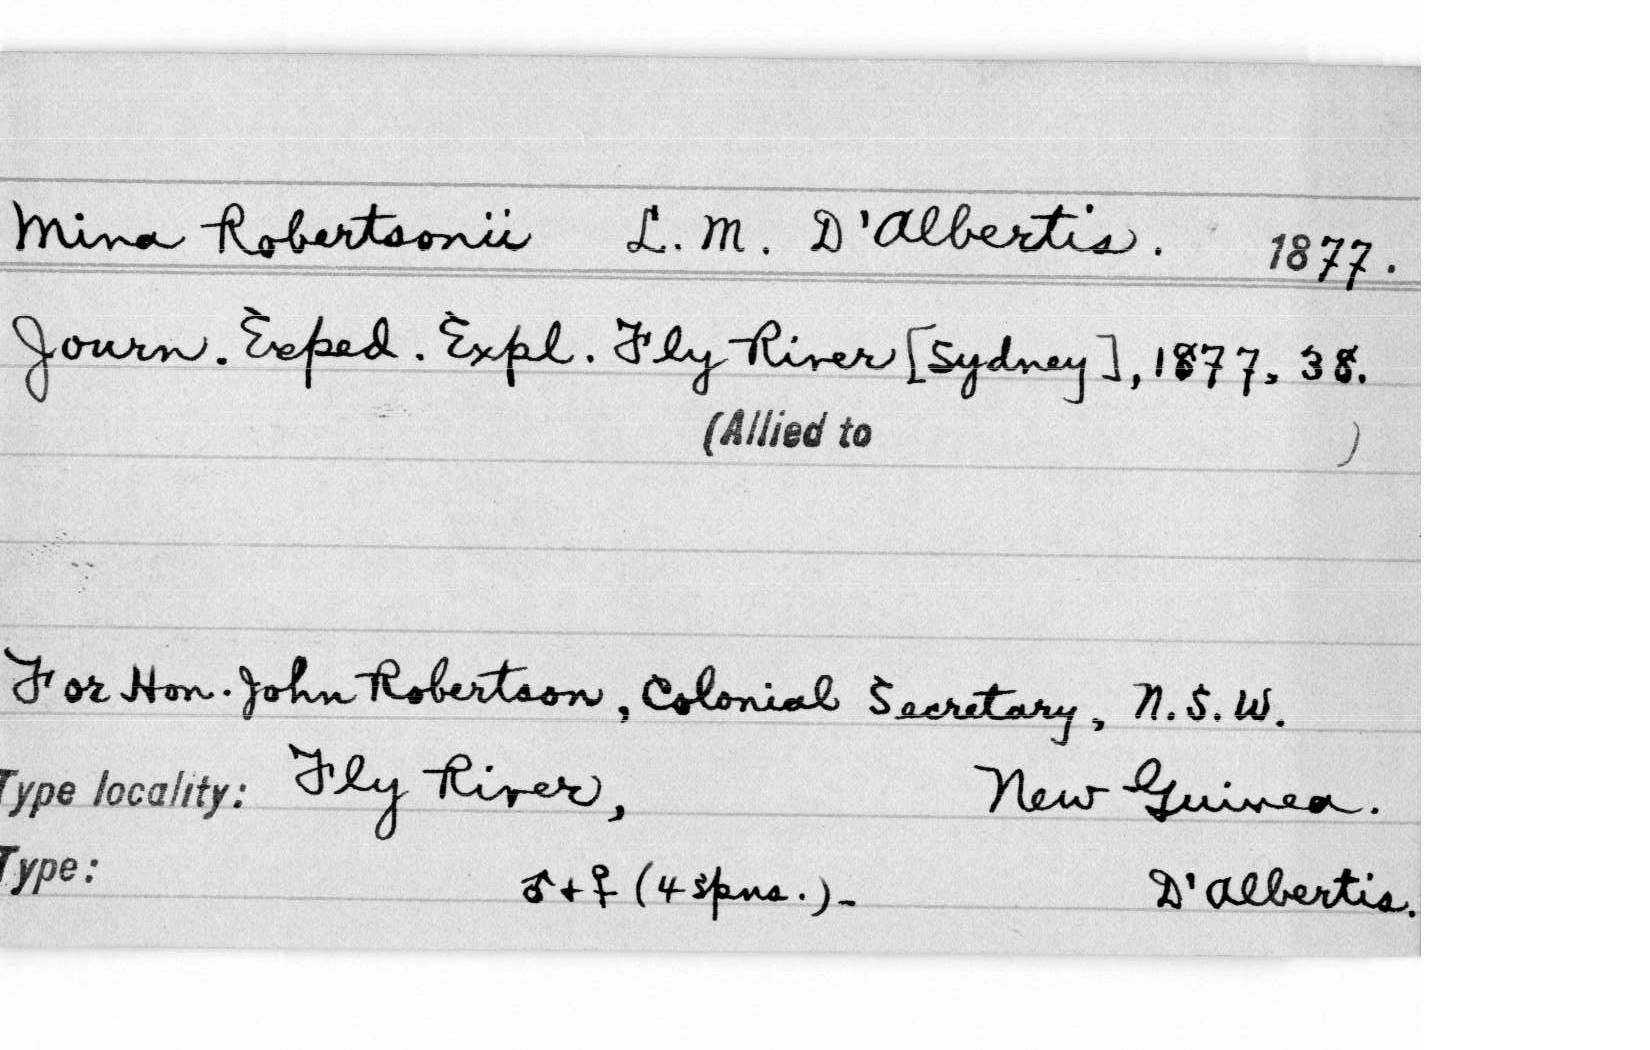 Mina Robertsonii L. M. D'Albertis. 1877.
Journ. Exped. Expl. Fly River [Sydney], 1877, 38.
(Allied to )
For Hon. John Robertson, Colonial Secretary, N.S.W.
Type locality: Fly River, New Guinea.
Type: ♂ + ♀ (4 spns.) - D'Albertis.